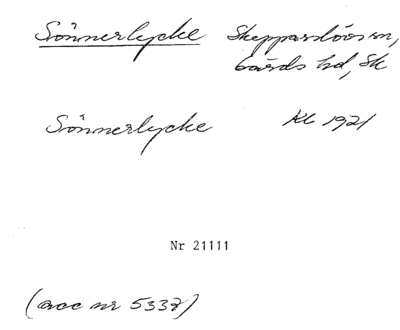 Sönnerlycke Skepparslövs sn,
Gärds hd, Sk
Sönnerlycke Kb 1921
Nr 21111
(acc nr 5337)